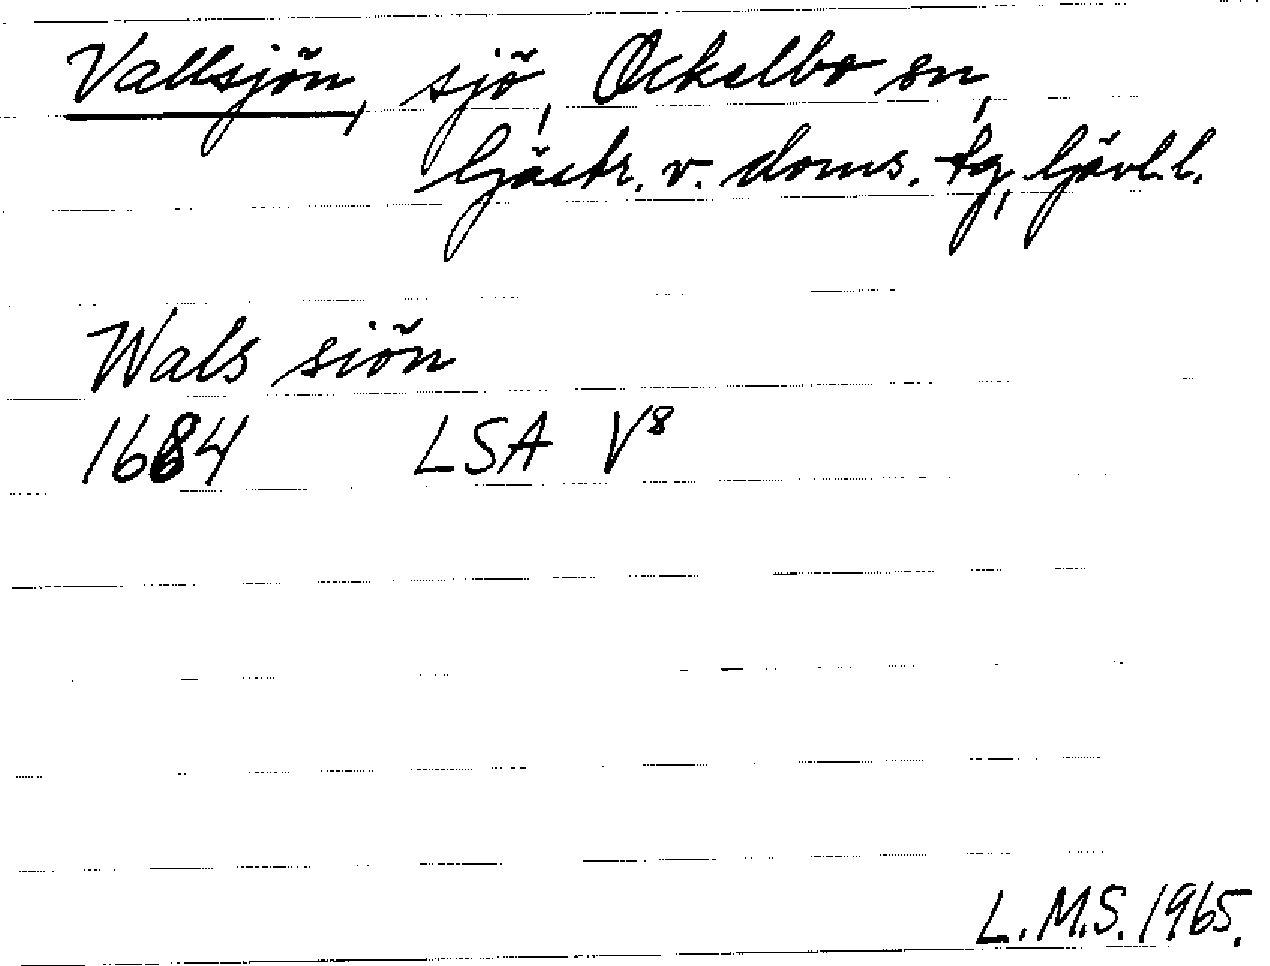 Vallsjön, sjö, Ockelbo sn,
Gästr. v. doms. tg, Gävl.l.
Wals siön
1684 LSA V⁸
L.M.S. 1965.